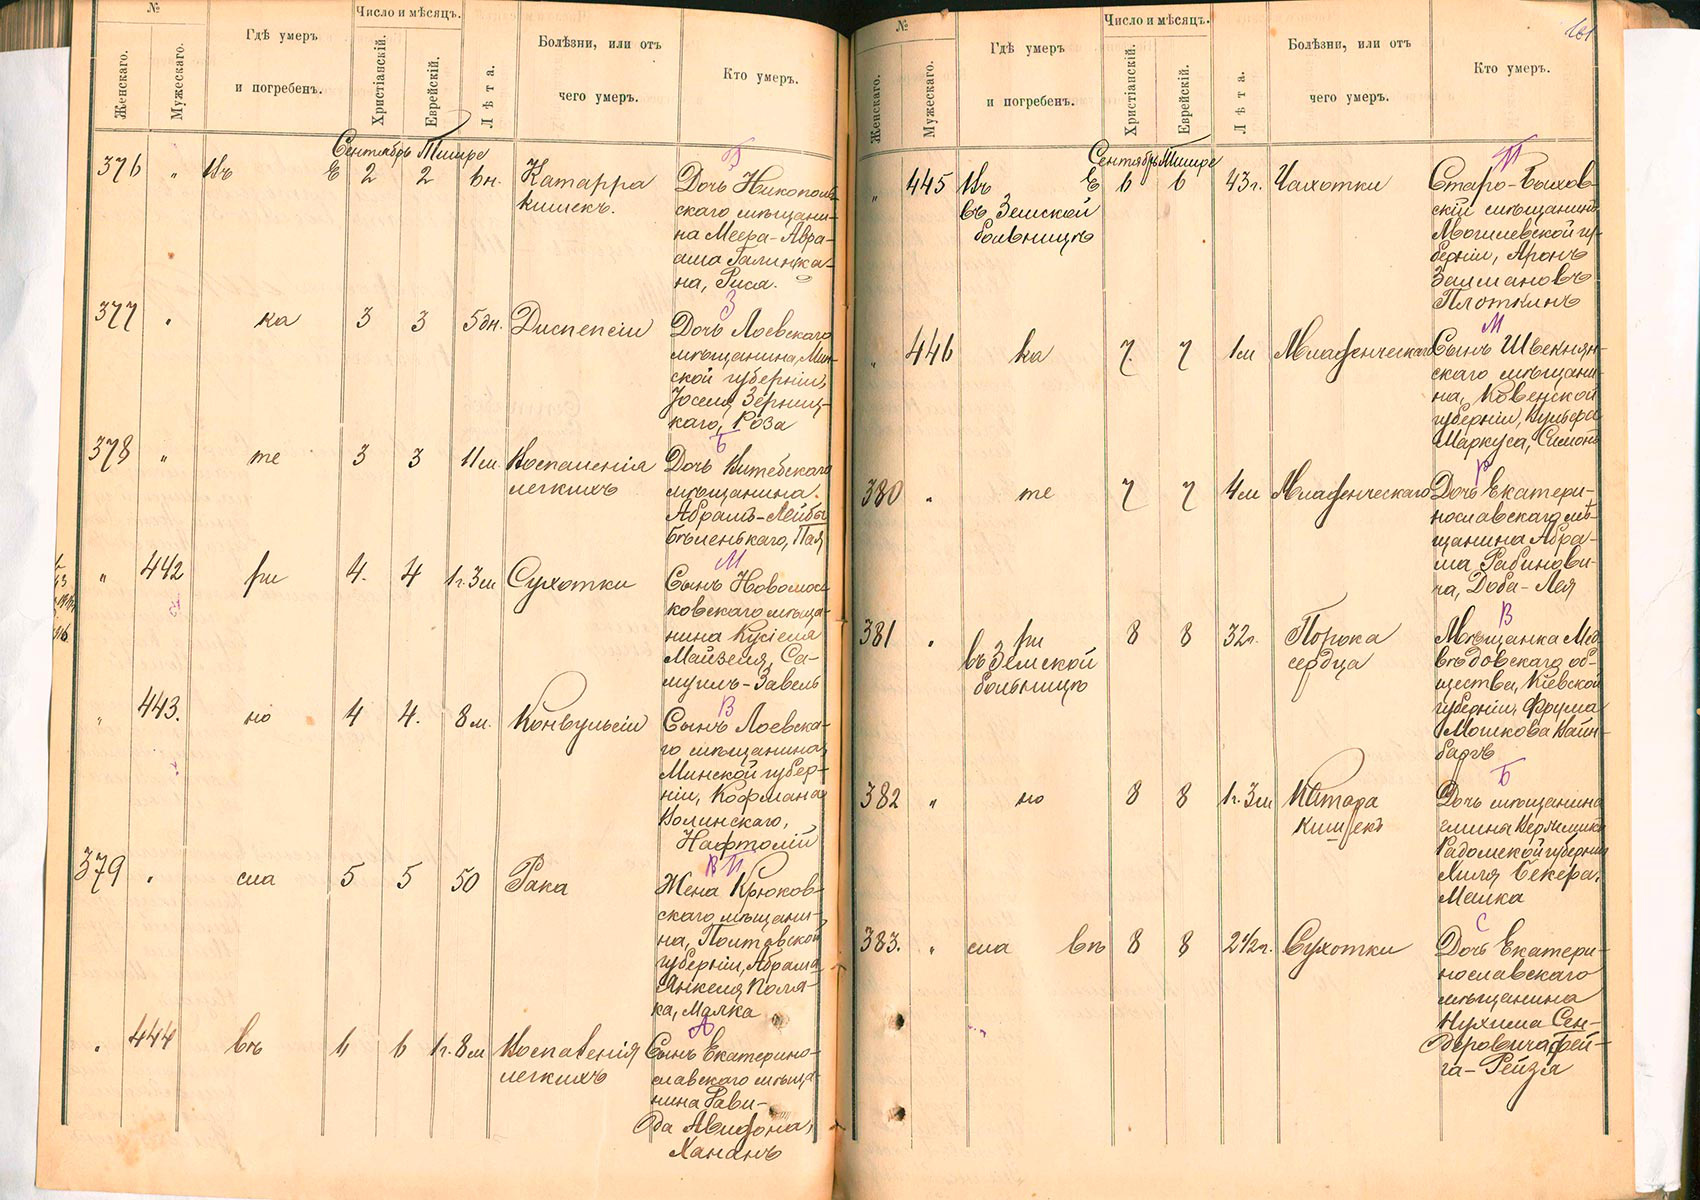 №
Число и мѣсяцъ.
Женскаго.
Мужескаго.
Гдѣ умеръ
и погребенъ.
Христіанскій.
Еврейскій.
Лѣта.
Болѣзни, или отъ
чего умеръ.
Кто умеръ.
Сентябрь Тишре
Б
376 " Въ Е 2 2 6 н. Катарра
кишекъ.
Дочь Никополь-
скаго мѣщани-
на Меера-Авра-
ама
на, Рися.
З
377 " ка 3 3 5 дн. Диспепсіи
Дочь Лоевскаго
мѣщанина, Мин-
ской губерніи,
Іоселя Зерниц-
каго, Роза
Б
378 " те 3 3 11 м. Воспаленія
легкихъ
Дочь Витебскаго
мѣщанина
Абрамъ-Лейбы
Бѣленькаго, Пая
М
" 442 ри 4. 4 1 г. 3 м Сухотки
Сынъ Новомос-
ковскаго мѣща-
нина Кусіеля
Майзеля, Са-
муилъ-Завель
В
" 443. но 4 4. 8 м. Конвульсіи
Сынъ Лоевска-
го мѣщанина,
Минской губер-
ніи, Кофмана
Волинскаго,
Нафтолій
ВП
379 " сла 5 5 50 Рака
Жена Крюков-
скаго мѣщани-
на, Полтавской
губерніи, Абрама
Янкеля Поля-
ка, Малка
А
" 444 въ 6 6 1 г. 8 м Воспаленія
легкихъ
Сынъ Екатерино-
славскаго мѣща-
нина Дави-
да
Хананъ
161
№
Число и мѣсяцъ.
Женскаго.
Мужескаго.
Гдѣ умеръ
и погребенъ.
Христіанскій.
Еврейскій.
Лѣта.
Болѣзни, или отъ
чего умеръ.
Кто умеръ.
Сентябрь Тишре
П
" 445 Въ Е 6 6 43 г. Чахотки
въ Земской
больницѣ
Старо-Быхов-
скій мѣщанинъ
Могилевской гу-
берніи, Аронъ
Залмановъ
Плоткинъ
М
" 446 ка 7 7 1 м Младенческаго
Сынъ
скаго мѣщани-
на, Ковенской
губерніи,
Маркуса, Симонъ
Р
380 " те 7 7 4 м Младенческаго
Дочь Екатери-
нославскаго мѣ-
щанина Абра-
ма Рабинови-
ча, Доба-Лея
В
381 " ри 8 8 32 г. Порока
сердца
въ Земской
больницѣ
Мѣщанка Мед-
вѣдовскаго об-
щества, Кіевской
губерніи, Фрума
Мошкова Вайн-
баргъ
Б
382 " но 8 8 1 г. 3 м Катара
кишекъ
Дочь мѣщанина
Радомской губерніи
Бекера,
Малка
С
383. " сла въ 8 8 2 1/2 г. Сухотки
Дочь Екатери-
нославскаго
мѣщанина
Нухима Сен-
деровича, Фей-
га-Рейзя